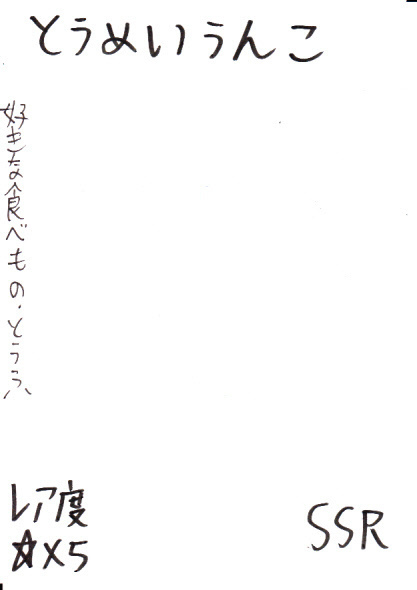 とうめいうんこ
好きな食べもの・とうふ
レア度
☆×5
SSR